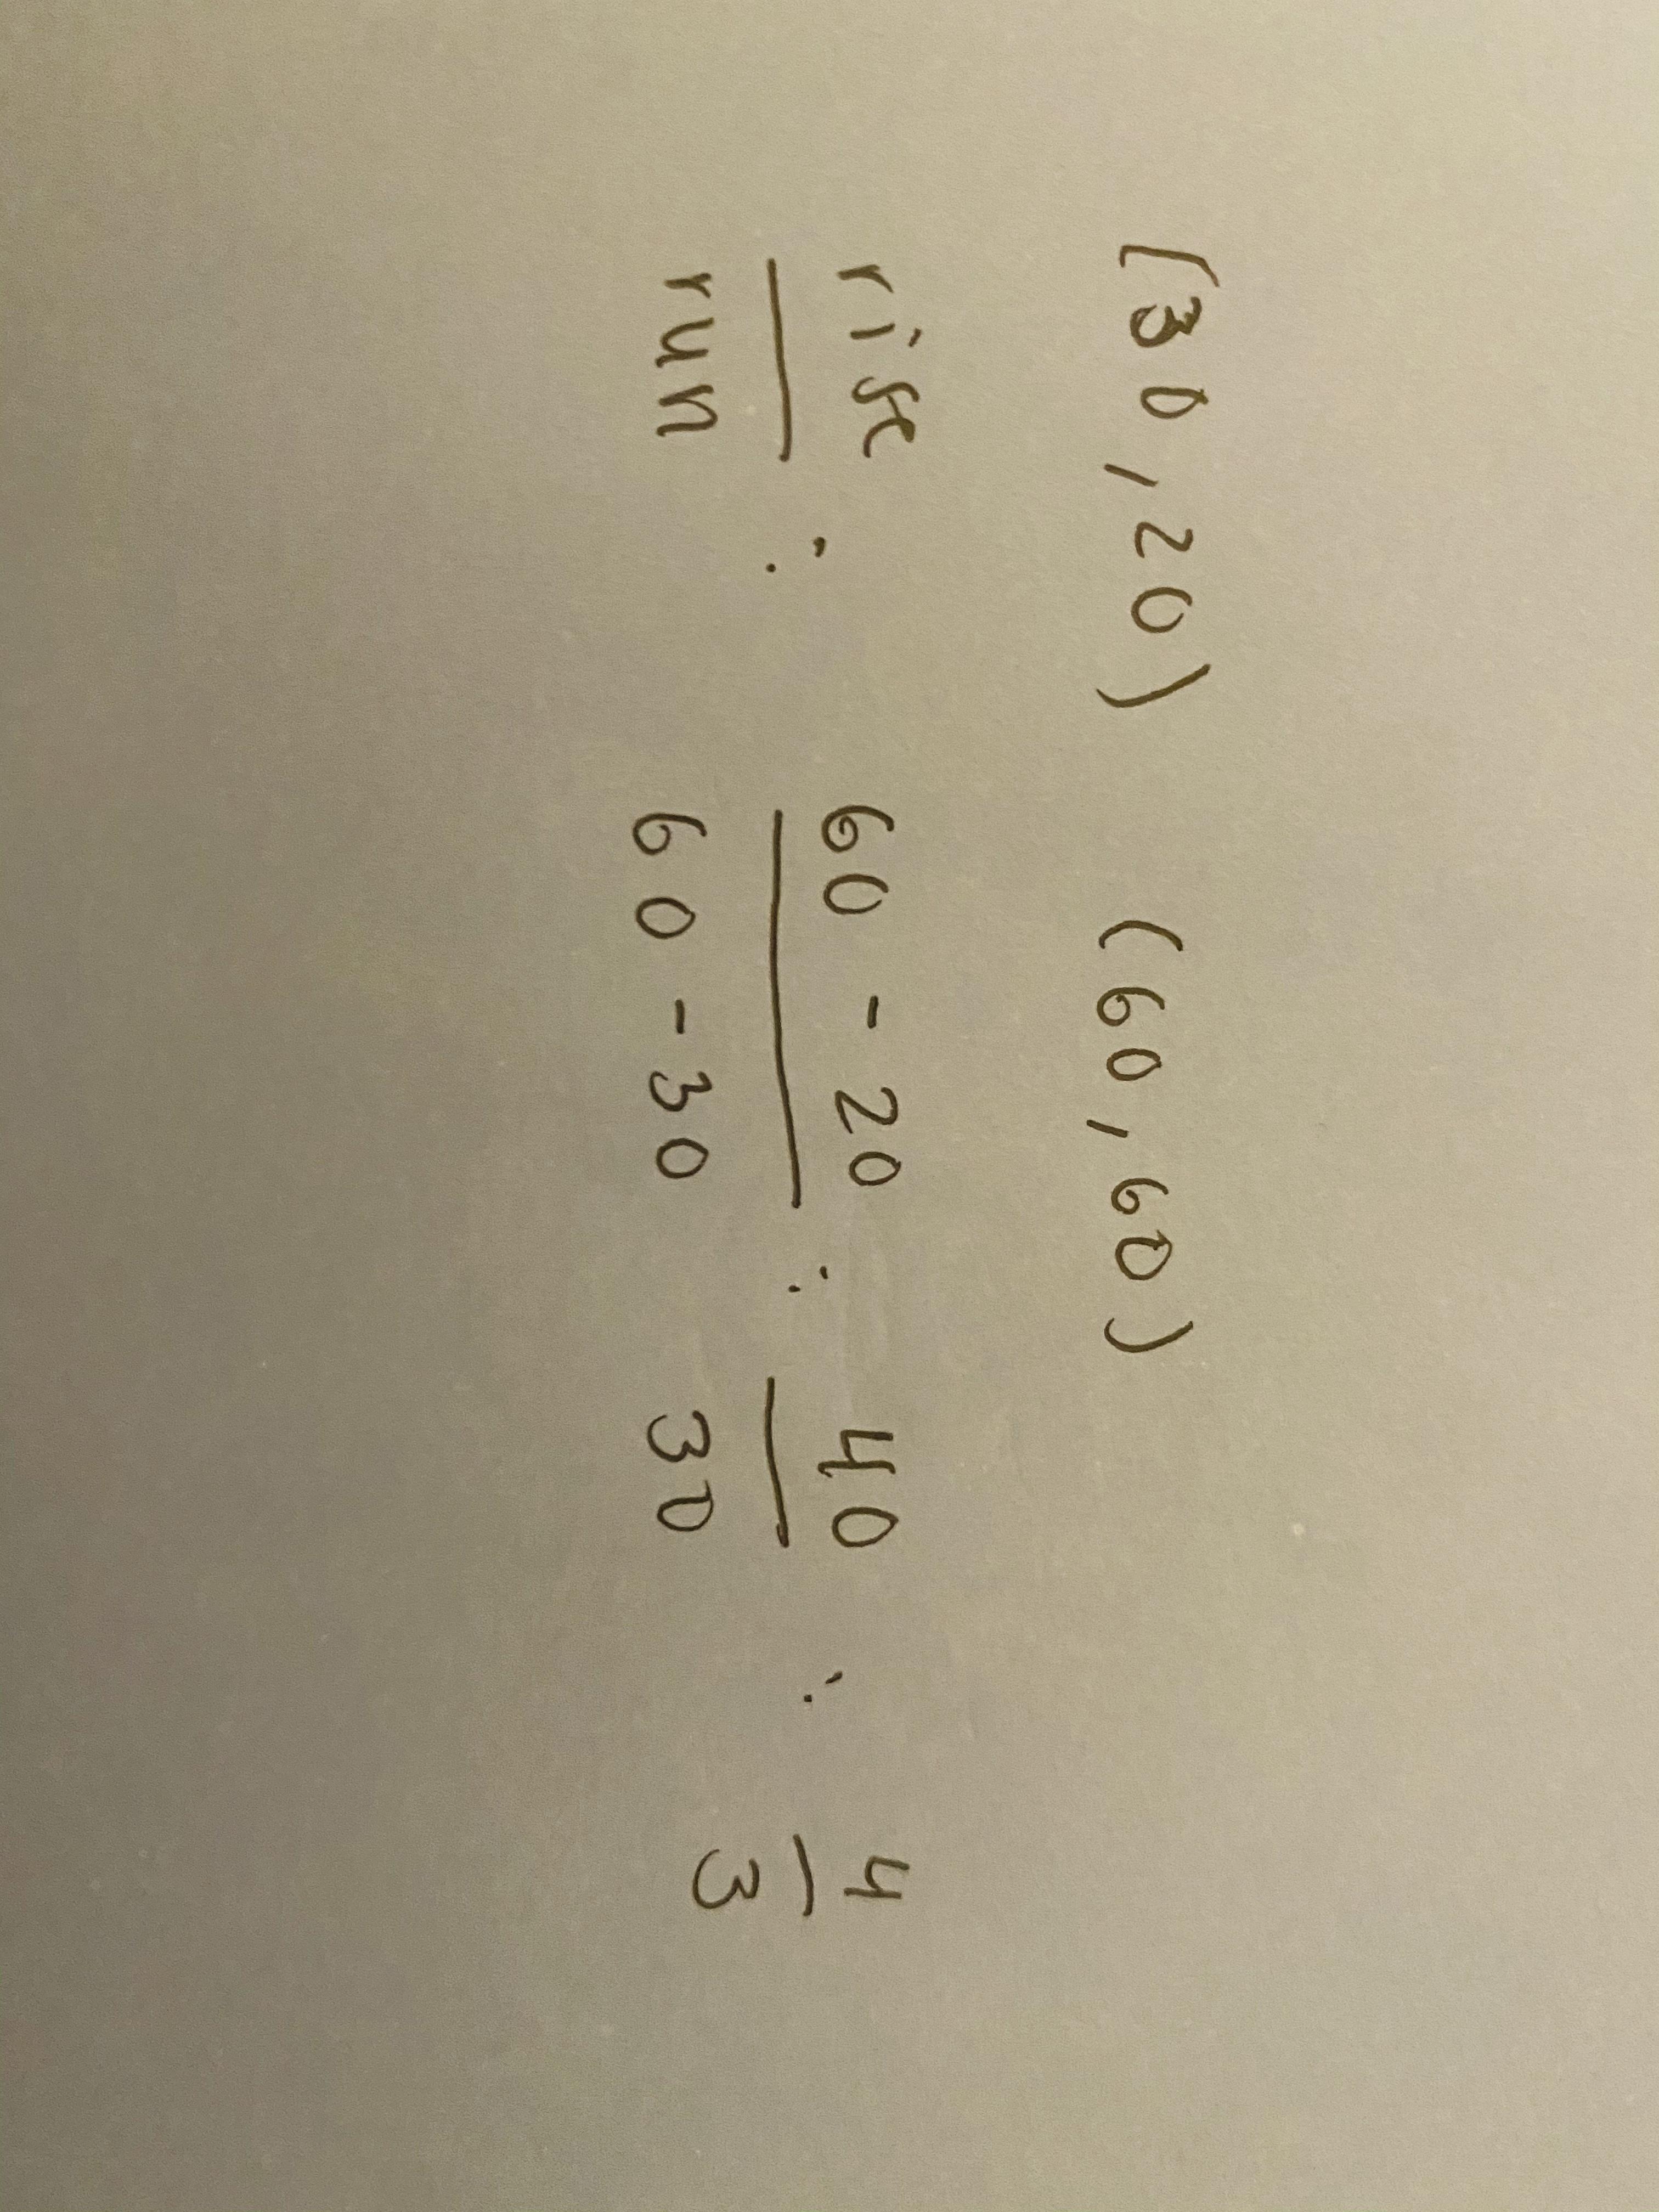 (30,20) (60,60)
rise/run : 60-20/60-30 : 40/30 : 4/3